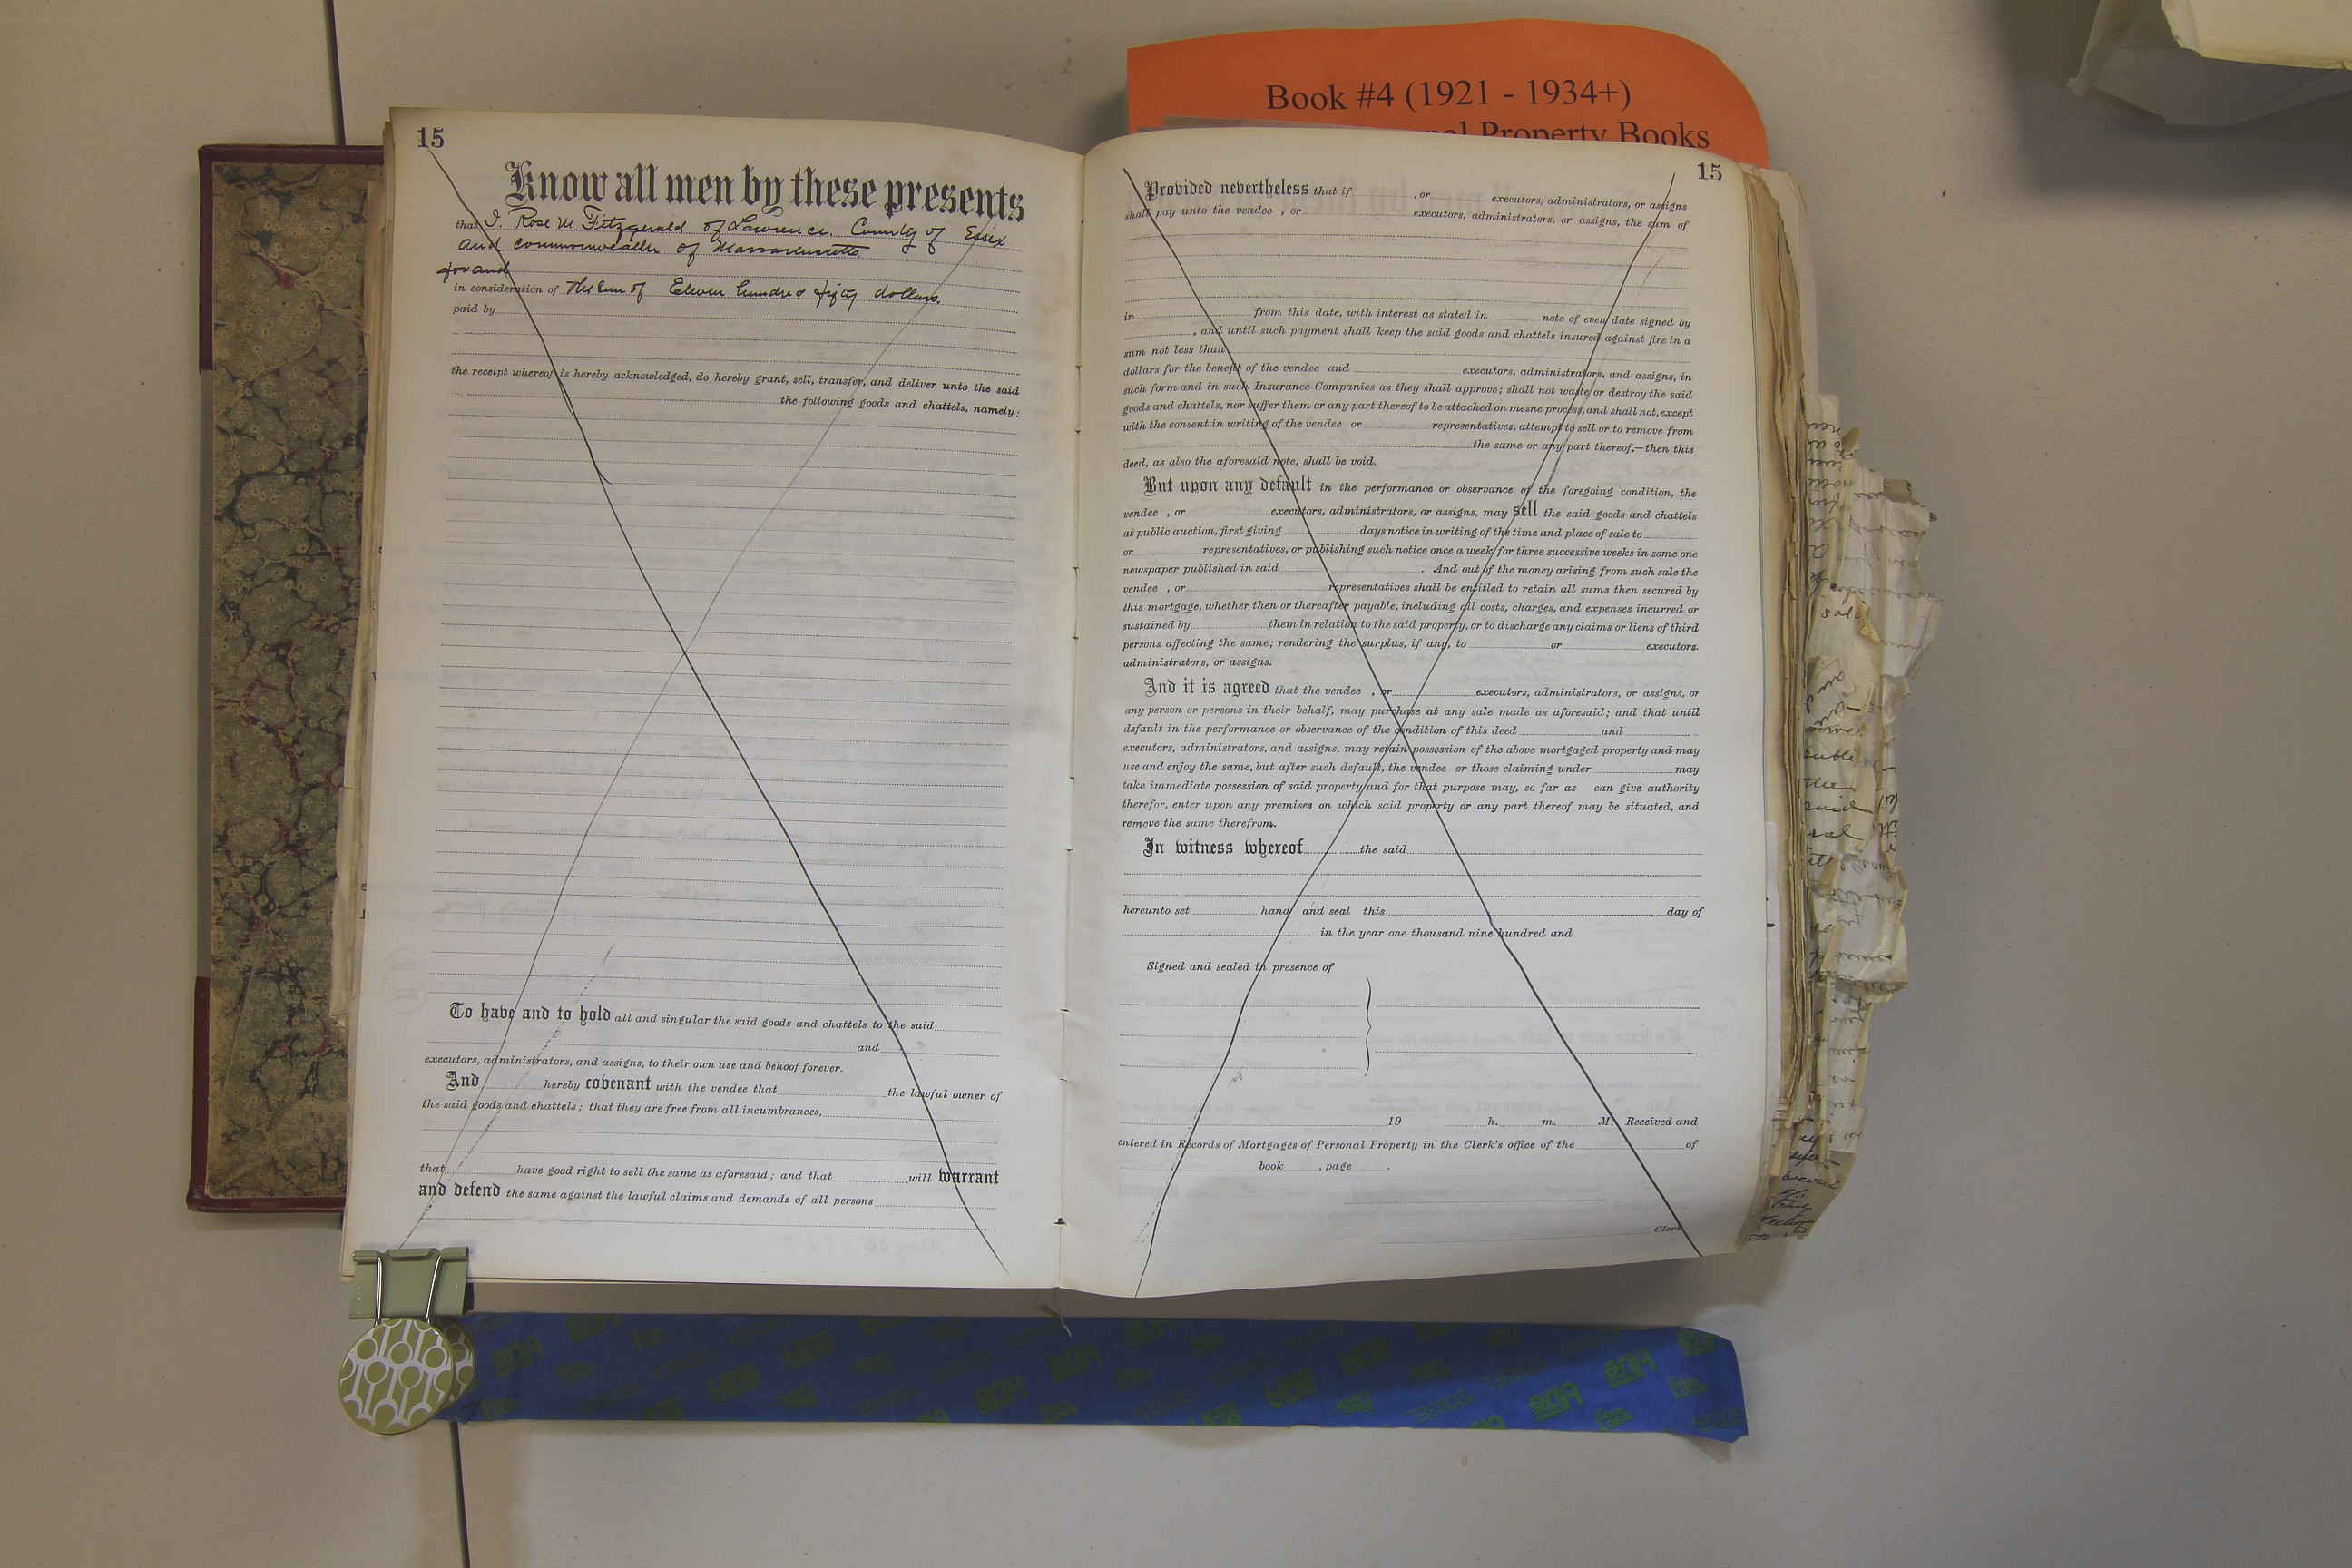 Book #4 (1921 - 1934+)
Property Books
15
Know all men by these presents
that I, Rose M Fitzgerald of Lawrence, County of Essex
and commonwealth of Massachusetts
for and
in consideration of The Sum of Eleven hundred fifty dollars.
paid by
the receipt whereof is hereby acknowledged, do hereby grant, sell, transfer, and deliver unto the said
the following goods and chattels, namely:
To have and to hold all and singular the said goods and chattels to the said
and
executors, administrators, and assigns, to their own use and behoof forever.
And hereby covenant with the vendee that the lawful owner of
the said goods and chattels; that they are free from all incumbrances,
that have good right to sell the same as aforesaid; and that will warrant
and defend the same against the lawful claims and demands of all persons
15
Provided nevertheless that if , or executors, administrators, or assigns
shall pay unto the vendee , or executors, administrators, or assigns, the sum of
in from this date, with interest as stated in note of even date signed by
, and until such payment shall keep the said goods and chattels insured against fire in a
sum not less than
dollars for the benefit of the vendee and executors, administrators, and assigns, in
such form and in such Insurance Companies as they shall approve; shall not waste or destroy the said
goods and chattels, nor suffer them or any part thereof to be attached on mesne process, and shall not, except
with the consent in writing of the vendee or representatives, attempt to sell or to remove from
the same or any part thereof,—then this
deed, as also the aforesaid note, shall be void.
But upon any default in the performance or observance of the foregoing condition, the
vendee , or executors, administrators, or assigns, may sell the said goods and chattels
at public auction, first giving days notice in writing of the time and place of sale to
or representatives, or publishing such notice once a week for three successive weeks in some one
newspaper published in said . And out of the money arising from such sale the
vendee , or representatives shall be entitled to retain all sums then secured by
this mortgage, whether then or thereafter payable, including all costs, charges, and expenses incurred or
sustained by them in relation to the said property, or to discharge any claims or liens of third
persons affecting the same; rendering the surplus, if any, to or executors.
administrators, or assigns.
And it is agreed that the vendee , or executors, administrators, or assigns, or
any person or persons in their behalf, may purchase at any sale made as aforesaid; and that until
default in the performance or observance of the condition of this deed and
executors, administrators, and assigns, may retain possession of the above mortgaged property and may
use and enjoy the same, but after such default, the vendee or those claiming under may
take immediate possession of said property and for that purpose may, so far as can give authority
therefor, enter upon any premises on which said property or any part thereof may be situated, and
remove the same therefrom.
In witness whereof the said
hereunto set hand and seal this day of
in the year one thousand nine hundred and
Signed and sealed in presence of
19 h. m. M. Received and
entered in Records of Mortgages of Personal Property in the Clerk's office of the of
book , page .
Clerk